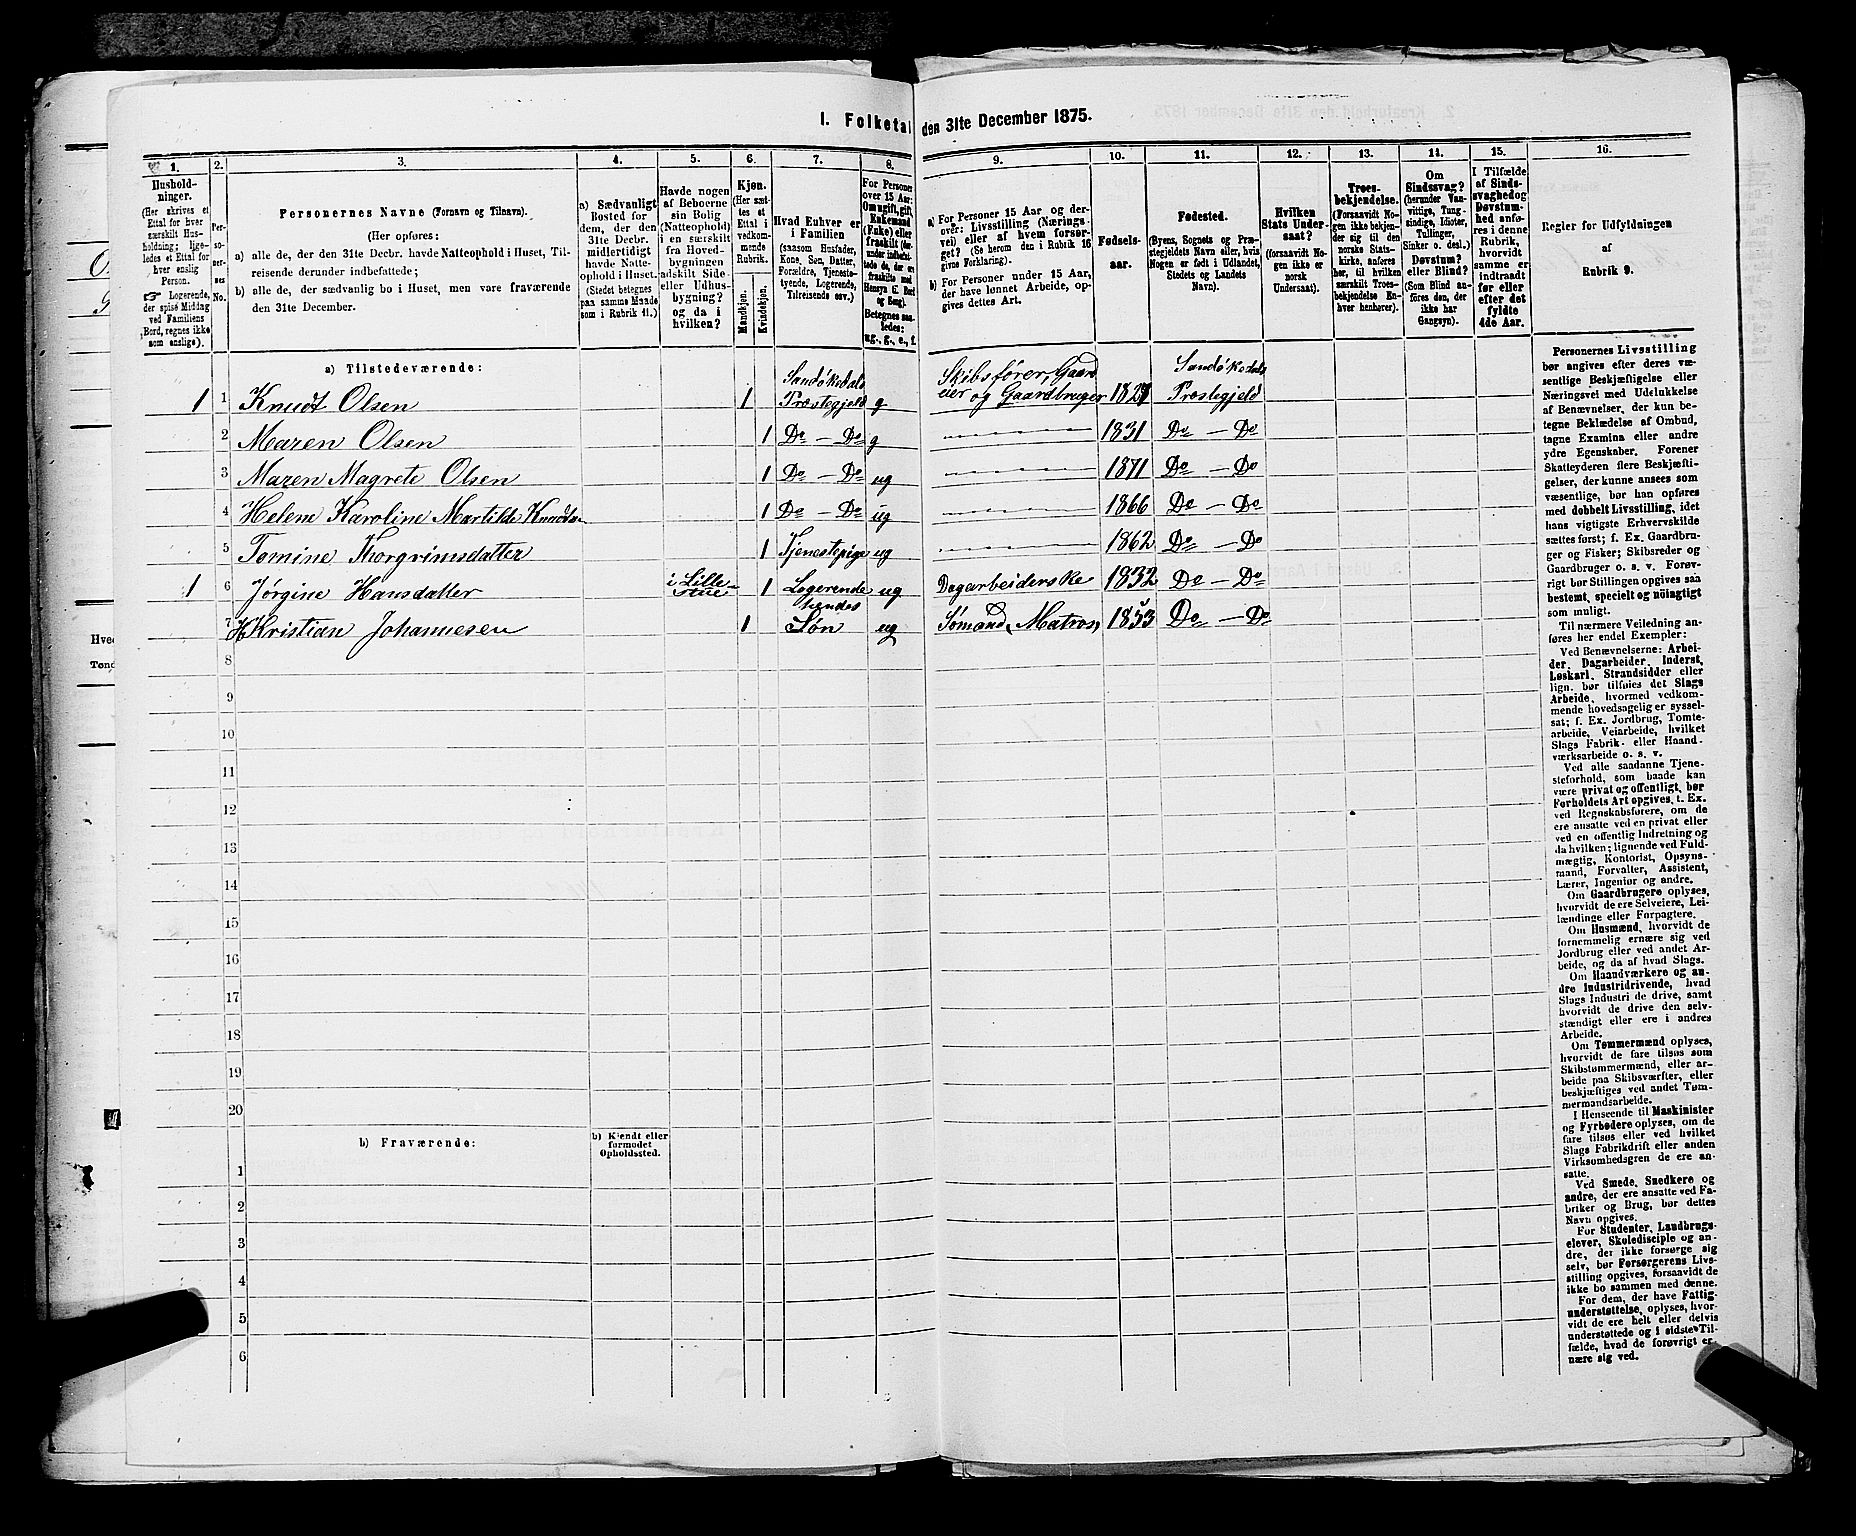 I. Folketal den 31te December 1875.
1. 2. 3. 4. 5. 6. 7. 8. 9. 10. 11. 12. 13. 14. 15. 16.
Hushold-
ninger.
(Her skrives et
Ettal for hver
særskilt Hus-
holdning; lige-
ledes et Ettal for
hver enslig
Person.
☞ Logerende,
der spise Middag
ved Familiens
Bord, regnes ikke
som enslige).
Per-
so-
ner-
nes
No.
Personernes Navne (Fornavn og Tilnavn).
(Her opføres:
a) alle de, der den 31te Decbr. havde Natteophold i Huset, Til-
reisende derunder indbefattede;
b) alle de, der sædvanlig bo i Huset, men vare fraværende
den 31te December.
a) Sædvanligt
Bosted for
dem, der den
31te Decbr.
midlertidigt
havde Natte-
ophold i Huset.
(Stedet betegnes
paa samme Maade
som i Rubrik 11.)
Havde nogen
af Beboerne
sin Bolig
(Natteophold)
i en særskilt
fra Hoved-
bygningen
adskilt Side-
eller Udhus-
bygning?
og da i
hvilken?
Kjøn.
(Her sæt-
tes et
Ettal i
vedkom-
mende
Rubrik.
Mandkjøn.
Kvindekjøn.
Hvad Enhver er
i Familien
(saasom Husfader,
Kone, Søn, Datter,
Forældre, Tjeneste-
tyende, Logerende,
Tilreisende osv.)
For Personer
over 15 Aar:
Om ugift, gift,
Enkemand
(Enke) eller
fraskilt
Betegnes saa-
ledes:
ug., g., e., f.
a) For Personer 15 Aar og der-
over: Livsstilling (Nærings-
vei) eller af hvem forsør-
get? (Se herom den i Rubrik 16
givne Forklaring).
b) For Personer under 15 Aar,
der have lønnet Arbeide, op-
gives dettes Art.
Fødsels-
aar.
Fødested.
(Byens, Sognets og Præ-
stegjeldets Navn eller, hvis
Nogen er født i Udlandet,
Stedets og Landets
Navn).
Hvilken
Stats Under-
saat?
(forsaavidt No-
gen ikke er
norsk
Undersaat).
Troes-
bekjendelse.
(Forsaavidt No-
gen ikke bekjen-
der sig til den
norske Stats-
kirke, anføres
her, til hvilken
særskilt Troes-
bekjendelse En-
hver henhører).
Om
Sindssvag?
(herunder Van-
vittige, Tung-
sindige, Idioter,
Tullinger,
Sinker o. desl.)
Døvstum?
eller Blind?
(Som Blind an-
føres den, der
ikke har
Gangsyn).
I Tilfælde
af Sinds-
svaghed og
Døvstum-
hed anfø-
res i denne
Rubrik,
hvorvidt
samme er
indtraadt
før eller
efter det
fyldte
4de Aar.
Regler for Udfyldningen
af
Rubrik 9.
a) Tilstedeværende:
1 1 Knudt Olsen 1 Sandøkedals Præstegjeld g Skibsfører, Gaard eier og Gaardbruger 1821 Sandøkedals Præstegjeld
2 Maren Olsen 1 Do — Do g 1831 Do — Do
3 Maren Magrete Olsen 1 Do — Do ug 1871 Do — Do
4 Helene Karoline Martilde Knudts 1 Do — Do ug 1866 Do — Do
5 Tomine Thorgrimsdatter 1 Tjenestepige ug 1862 Do — Do
1 6 Jørgine Hansdatter i Lille- stue 1 Logerende ug Dagarbeiderske 1832 Do — Do
7 H Kristian Johannesen 1 hendes Søn ug Sømand, Matros, 1853 Do — Do
8
9
10
11
12
13
14
15
16
17
18
19
20
b) Fraværende:
b) Kjendt eller
formodet
Opholdssted.
1
2
3
4
5
6
Personernes Livsstilling
bør angives efter deres væ-
sentlige Beskjæftigelse eller
Næringsvei med Udelukkelse
af Benævnelser, der kun be-
tegne Beklædelse af Ombud,
tagne Examina eller andre
ydre Egenskaber. Forener
Skatteyderen flere Beskjæfti-
gelser, der kunne ansees som
væsentlige, bør han opføres
med dobbelt Livsstilling, idet
hans vigtigste Erhvervskilde
sættes først; f. Ex. Gaardbru-
ger og Fisker; Skibsreder og
Gaardbruger o. s. v. Forøv-
rigt bør Stillingen opgives saa
bestemt, specielt og nöiagtigt
som muligt.
Til nærmere Veiledning an-
føres her endel Exempler:
Ved Benævnelserne: Arbei-
der, Dagarbeider, Inderst,
Løskarl, Strandsidder eller
lign. bør tilføies det Slags
Arbeide, hvormed vedkom-
mende hovedsagelig er syssel-
sat; f. Ex. Jordbrug, Tomte-
arbeide, Veiarbeide, hvilket
Slags Fabrik- eller Haand-
værksarbeide o. s. v.
Ved alle saadanne Tjene-
steforhold, som baade kan
være privat og offentligt, bør
Forholdets Art opgives, t. Ex.
ved Regnskabsførere, om de
ere ansatte ved en privat eller
ved en offentlig Indretning og
da hvilken; lignende ved Fuld-
mægtig, Kontorist, Opsyns-
mand, Forvalter, Assistent,
Lærer, Ingeniør og andre.
Om Gaardbrugere oplyses,
hvorvidt de ere Selveiere, Lei-
lændinge eller Forpagtere.
Om Husmænd, hvorvidt de
fornemmelig ernære sig ved
Jordbrug eller ved andet Ar-
beide, og da af hvad Slags.
Om Haandværkere og an-
dre Industridrivende, hvad
Slags Industri de drive, samt
hvorvidt de drive den selv-
stændigt eller ere i andres
Arbeide.
Om Tømmermænd oplyses,
hvorvidt de fare tilsøs som
Skibstømmermænd, eller ar-
beide paa Skibsværfter, eller
beskjæftiges ved andet Tøm-
mermandsarbeide.
I Henseende til Maskinister
og Fyrbødere oplyses, om de
fare tilsøs eller ved hvilket
Slags Fabrikdrift eller anden
Virksomhedsgren de ere an-
satte.
Ved Smede, Snedkere og
andre, der ere ansatte ved Fa-
briker og Brug, bør dettes
Navn opgives.
For Studenter, Landbrugs-
elever, Skoledisciple og an-
dre, der ikke forsørge sig
selv, bør Forsørgerens Livs-
stilling opgives, forsaavidt de
ikke bo sammen med denne.
For dem, der have Fattig-
understøttelse, oplyses, hvor-
vidt de ere helt eller delvis
understøttede og i sidste Til-
fælde, hvad de forøvrigt er-
nære sig ved.